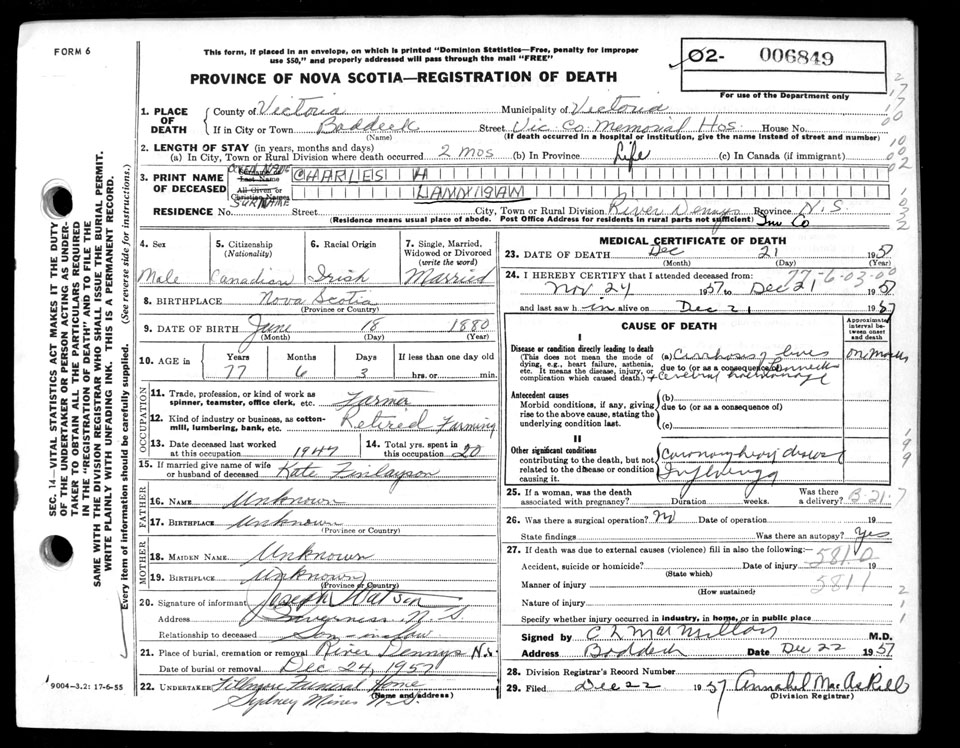 FORM 6
This form, if placed in an envelope, on which is printed "Dominion Statistics—Free, penalty for improper
use $50," and properly addressed will pass through the mail "FREE"
02- 006849
For use of the Department only
PROVINCE OF NOVA SCOTIA—REGISTRATION OF DEATH
1. PLACE OF DEATH
County of Victoria Municipality of Victoria
If in City or Town Baddeck Street Vic Co. Memorial Hos. House No.
(Name) (If death occurred in a hospital or institution, give the name instead of street and number)
2. LENGTH OF STAY (in years, months and days)
(a) In City, Town or Rural Division where death occurred 2 mos (b) In Province Life (c) In Canada (if immigrant)
3. PRINT NAME OF DECEASED
Last Name CHARLES H
All Given or Christian Names SURNAME LANNIGAN
RESIDENCE No. Street City, Town or Rural Division River Dennys Province N.S.
(Residence means usual place of abode. Post Office Address for residents in rural parts not sufficient) Inv Co
4. Sex Male
5. Citizenship (Nationality) Canadian
6. Racial Origin Irish
7. Single, Married, Widowed or Divorced (write the word) Married
8. BIRTHPLACE Nova Scotia
(Province or Country)
9. DATE OF BIRTH June 18 1880
(Month) (Day) (Year)
10. AGE in Years Months Days If less than one day old
77 6 3 hrs. or min.
OCCUPATION
11. Trade, profession, or kind of work as spinner, teamster, office clerk, etc. Farmer
12. Kind of industry or business, as cotton-mill, lumbering, bank, etc. Retired Farming
13. Date deceased last worked at this occupation 1947
14. Total yrs. spent in this occupation 20
15. If married give name of wife or husband of deceased Kate Finlayson
FATHER
16. NAME Unknown
17. BIRTHPLACE Unknown
(Province or Country)
MOTHER
18. MAIDEN NAME Unknown
19. BIRTHPLACE Unknown
(Province or Country)
20. Signature of informant Joseph Watson
Address Inverness N.S.
Relationship to deceased Son-in-law
21. Place of burial, cremation or removal River Dennys N.S.
Date of burial or removal Dec 24, 1957
22. UNDERTAKER Fillmore Funeral Home
(Name and address)
Sydney Mines N.S.
9004-3.2: 17-6-55
MEDICAL CERTIFICATE OF DEATH
23. DATE OF DEATH Dec 21 1957
(Month) (Day) (Year)
77-6-03-00
24. I HEREBY CERTIFY that I attended deceased from:
Nov 24 1957 to Dec 21 1957
and last saw him alive on Dec 21 1957
CAUSE OF DEATH
Approximate interval between onset and death
I
Disease or condition directly leading to death
(This does not mean the mode of dying, e.g., heart failure, asthenia, etc. It means the disease, injury, or complication which caused death.)
(a) Cirrhosis of liver
due to (or as a consequence of)
+ Cerebral hemorrhage
Antecedent causes
Morbid conditions, if any, giving rise to the above cause, stating the underlying condition last.
(b)
due to (or as a consequence of)
(c)
II
Other significant conditions
contributing to the death, but not related to the disease or condition causing it.
Coronary heart disease
Influenza
25. If a woman, was the death associated with pregnancy? Duration weeks. Was there a delivery?
26. Was there a surgical operation? No Date of operation 19
State findings Was there an autopsy? Yes
27. If death was due to external causes (violence) fill in also the following:—
581.0
Accident, suicide or homicide? Date of injury 19
(State which)
5811
Manner of injury
(How sustained)
Nature of injury
Specify whether injury occurred in industry, in home, or in public place
Signed by C L MacMillan M.D.
Address Baddeck Date Dec 22 1957
28. Division Registrar's Record Number
29. Filed Dec 22 1957 Annabel MacAskill
(Division Registrar)
SEC. 14—VITAL STATISTICS ACT MAKES IT THE DUTY
OF THE UNDERTAKER OR PERSON ACTING AS UNDER-
TAKER TO OBTAIN ALL THE PARTICULARS REQUIRED
IN THE "REGISTRATION OF DEATH" AND TO FILE THE
SAME WITH THE DIVISION REGISTRAR WHO SHALL ISSUE THE BURIAL PERMIT.
WRITE PLAINLY WITH UNFADING INK. THIS IS A PERMANENT RECORD.
Every item of information should be carefully supplied. (See reverse side for instructions.)